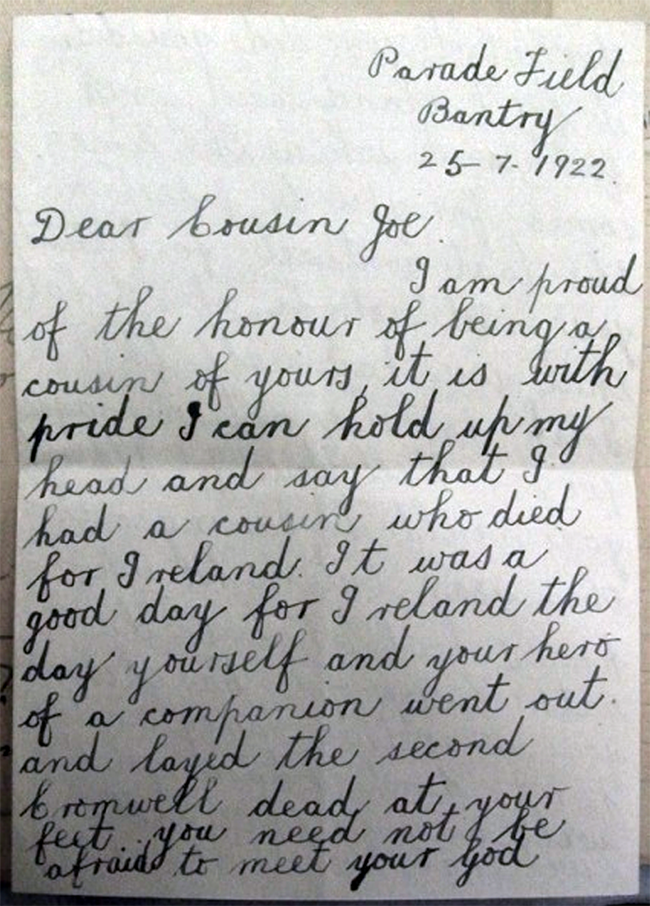 Parade Field
Bantry
25-7-1922.
Dear Cousin Joe.
I am proud
of the honour of being a
cousin of yours, it is with
pride I can hold up my
head and say that I
had a cousin who died
for Ireland. It was a
good day for Ireland the
day yourself and your hero
of a companion went out.
and layed the second
Cromwell dead at your
feet you need not be
afraid to meet your God